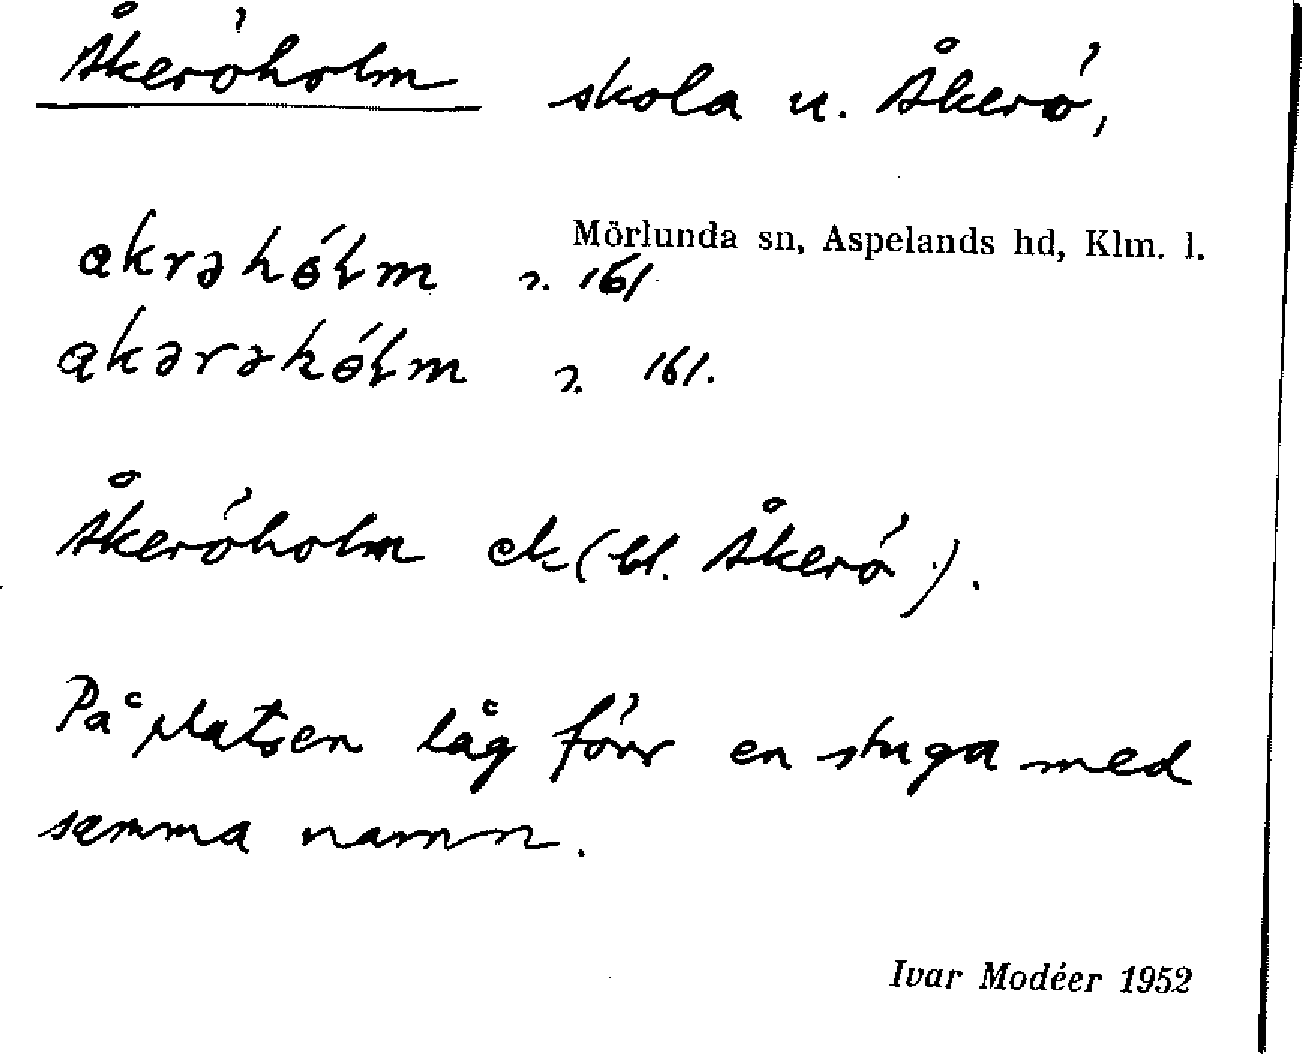 Åkeröholm skola u. Åkerö,
Mörlunda sn, Aspelands hd, Klm. l.
akrəhólm 2. 161
akərəhólm 2. 161.
Åkeröholm ek (bl. Åkerö).
På platsen låg förr en stuga med
samma namn.
Ivar Modéer 1952